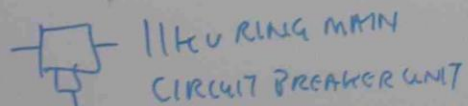 11KV RING MAIN
CIRCUIT BREAKER UNIT